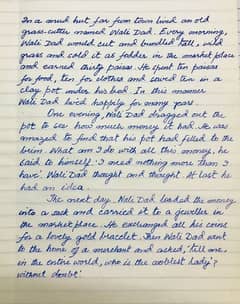 In a mud hut far from town lived an old
grass-cutter named Wali Dad. Every morning,
Wali Dad would cut and bundled tall, wild
grass and sold it as fodder in the market place
and earned thirty paises. He spent ten paises
for food, ten for clothes and saved ten in a
clay pot under his bed. In this manner
Wali Dad lived happily for many years.
One evening, Wali Dad dragged out the
pot to see how much money it had. He was
amazed to find that his pot had filled to the
brim. What am I do with all this money, he
said to himself. I need nothing more than I
have'. Wali Dad thought and thought. At last he
had an idea.
The next day, Wali Dad loaded the money
into a sack and carried it to a jeweller in
the market place. He exchanged all his coins
for a lovely gold bracelet. Then Wali Dad went
to the home of a merchant and asked, 'tell me,
in the entire world, who is the noblest lady'?
without doubt'